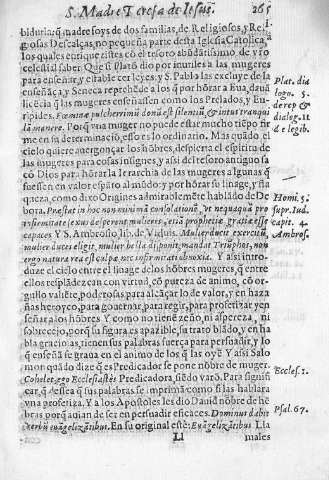 S. Madre Teresa de Iesus. 265
bidurla: q̃ madre soys de dos familias, de Religiosos, y Reli-
giosas Descalças, no pequeña parte desta Iglesia Catolica, a
los quales enriqueze este el tesoro abũdãtissimo, de vr̃o
celestial saber Que si Platõ dio por inutiles a las mugeres
para enseñar, y establecer leyes: y S. Pablo las excluye de la
enseñãça, y Seneca reprehẽde a los q̃ por hõrar a Eua, dauã
licẽcia q̃ las mugeres enseñassen como los Prelados, y Eu-
ripides. Fœminæ pulcherrimũ donũ est silentiũ, & intus tranqui
la manere. Porq̃ vna muger no puede estar mucho tiẽpo fir
me en su determinaciõ, esto es lo ordinario. Mas quãdo el
cielo quiere auergonçar los hõbres, despierta el espiritu de
las mugeres para cosas insignes, y assi del tesoro antiguo sa
cò Dios para hõrar la Ierarchia de las mugeres algunas q̃
fuessen en valor espãto al mũdo: y por hõrar su linage, y sta
queza, como dixo Origenes admirablemẽte hablãdo de De
bora. Præstat in hoc non minimã consolationẽ, vt nequaquã pro
infirmitate sexus desperent mulieres, etiã prophetiæ gratiæ esse
capaces. Y S. Ambrosio, lib. de Viduis. Mulier ducit exercitũ,
mulier duces eligit, mulier bella disponit, mandat Triũphos, non
ergo natura rea est culpæ nec infirmitati obnoxia. Y assi intro-
duze el cielo entre el linage de los hõbres mugeres, q̃ entre
ellos resplãdezcan con virtud, cõ pureza de animo, cõ or-
gullo valiẽte, poderosas para alcãçar lo de valor, y en haza
ñas heroyco, para gouernar, para regir, para profetizar y en
señar a los hõbres. Y como no tienẽ zeño, ni aspereza, ni
sobrecejo, porq̃ su figura es apazible, su trato blãdo, y en ha
bla gracioso, tienen sus palabras fuerça para persuadir, y lo
q̃ enseñã se graua en el animo de los q̃ las oyẽ Y assi Salo
mon quãdo dize q̃ es Predicador se pone nõbre de muger.
Cohelet, ego Ecclesiastes Predicadora, siẽdo varõ. Para signifi
car, q̃ dessea q̃ sus palabras se imprimã: como si las hablara
vna profetiza. Y a los Apostoles les dio Dauid nõbre de hẽ
bras porq̃ auian de ser en persuadir eficaces. Dominus dabit
verbũ euãgelizãtibus. En su original està: Euãgelizãtibus Lla
Ll males
Plat. dia
logn. 5.
de rep &
dialog. 11
de legib.
Homi. 5.
supr. Iud.
capit. 4.
Ambros.
Eccles. 1.
Psal. 67.